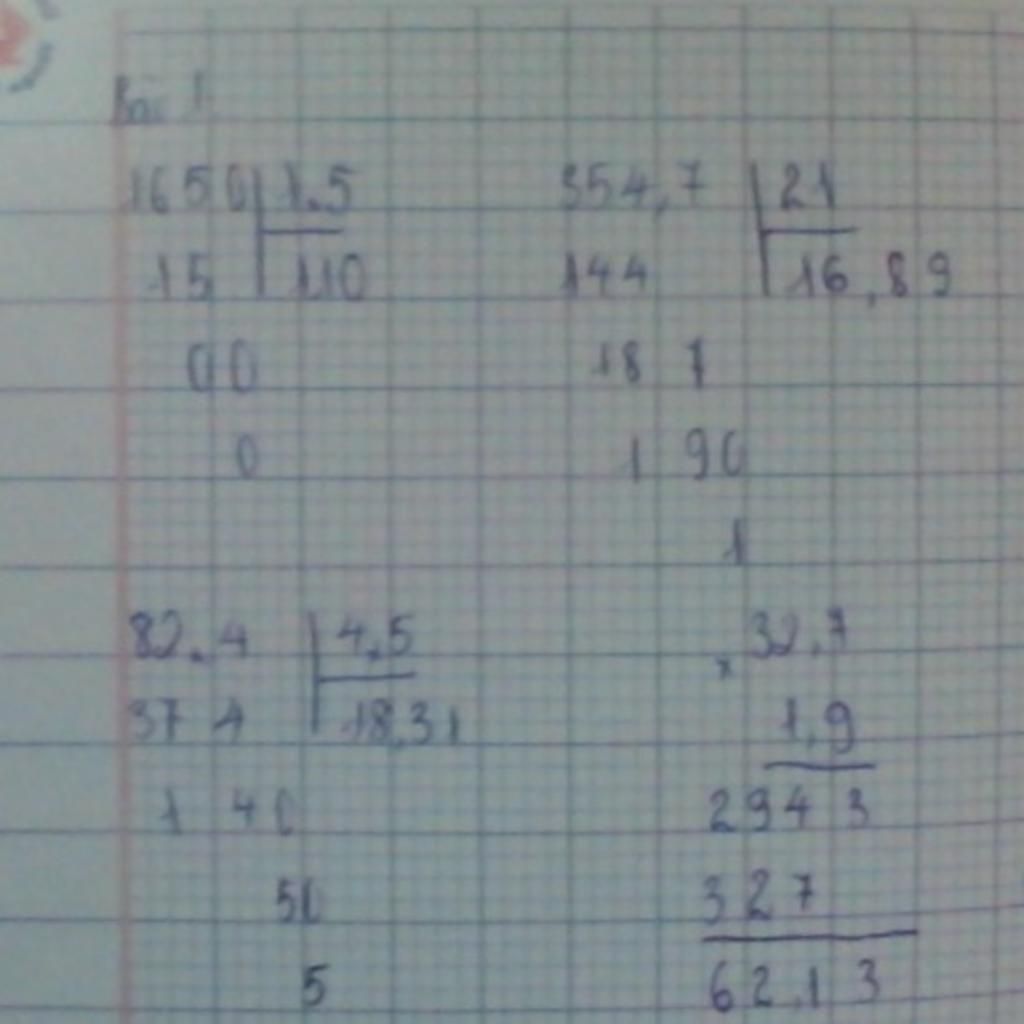 Bài 1
1650 1.5
15 110
00
0
354,7 21
144 16,89
18 7
1 90
1
82.4 4.5
37 4 18,31
1 40
50
5
x 32,7
1,9
294 3
32 7
62,1 3